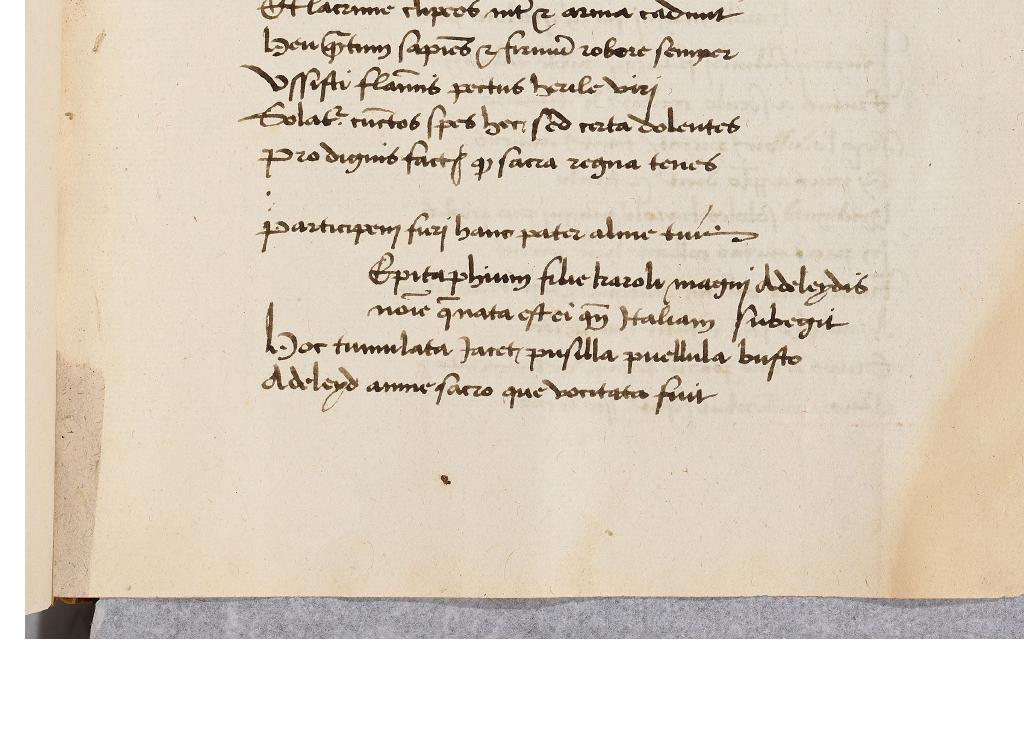 Et lacrime clipeos int̄ ⁊ arma cadunt
Heu qᷓtum sapiēs ⁊ firmū robore semper
Vssisti flam̄is pectus herile viri
Solat᷑ cūctos spes hec sed certa dolentes
Pro dignis factꝭ ꝙ sacra regna tenes
Participem fieri hanc pater alme tui
Epitaphium filie karoli magni Adeleydis
noīe q̄ nata est ei qn̄ Italiam subegit
Hoc tumulata Iacet pusilla puellula busto
Adeleyd amne sacro que vocitata fuit